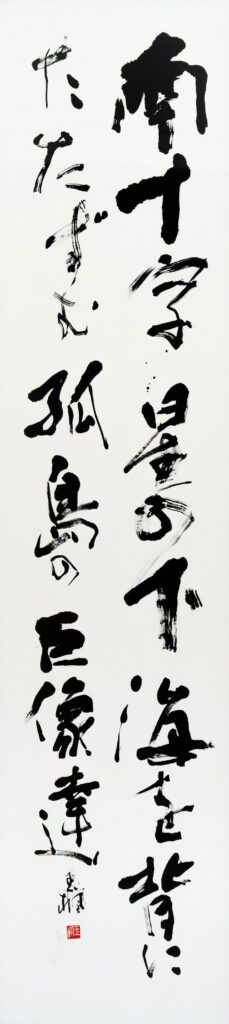 南十字星の下海を背に
たたずむ孤島の巨像達